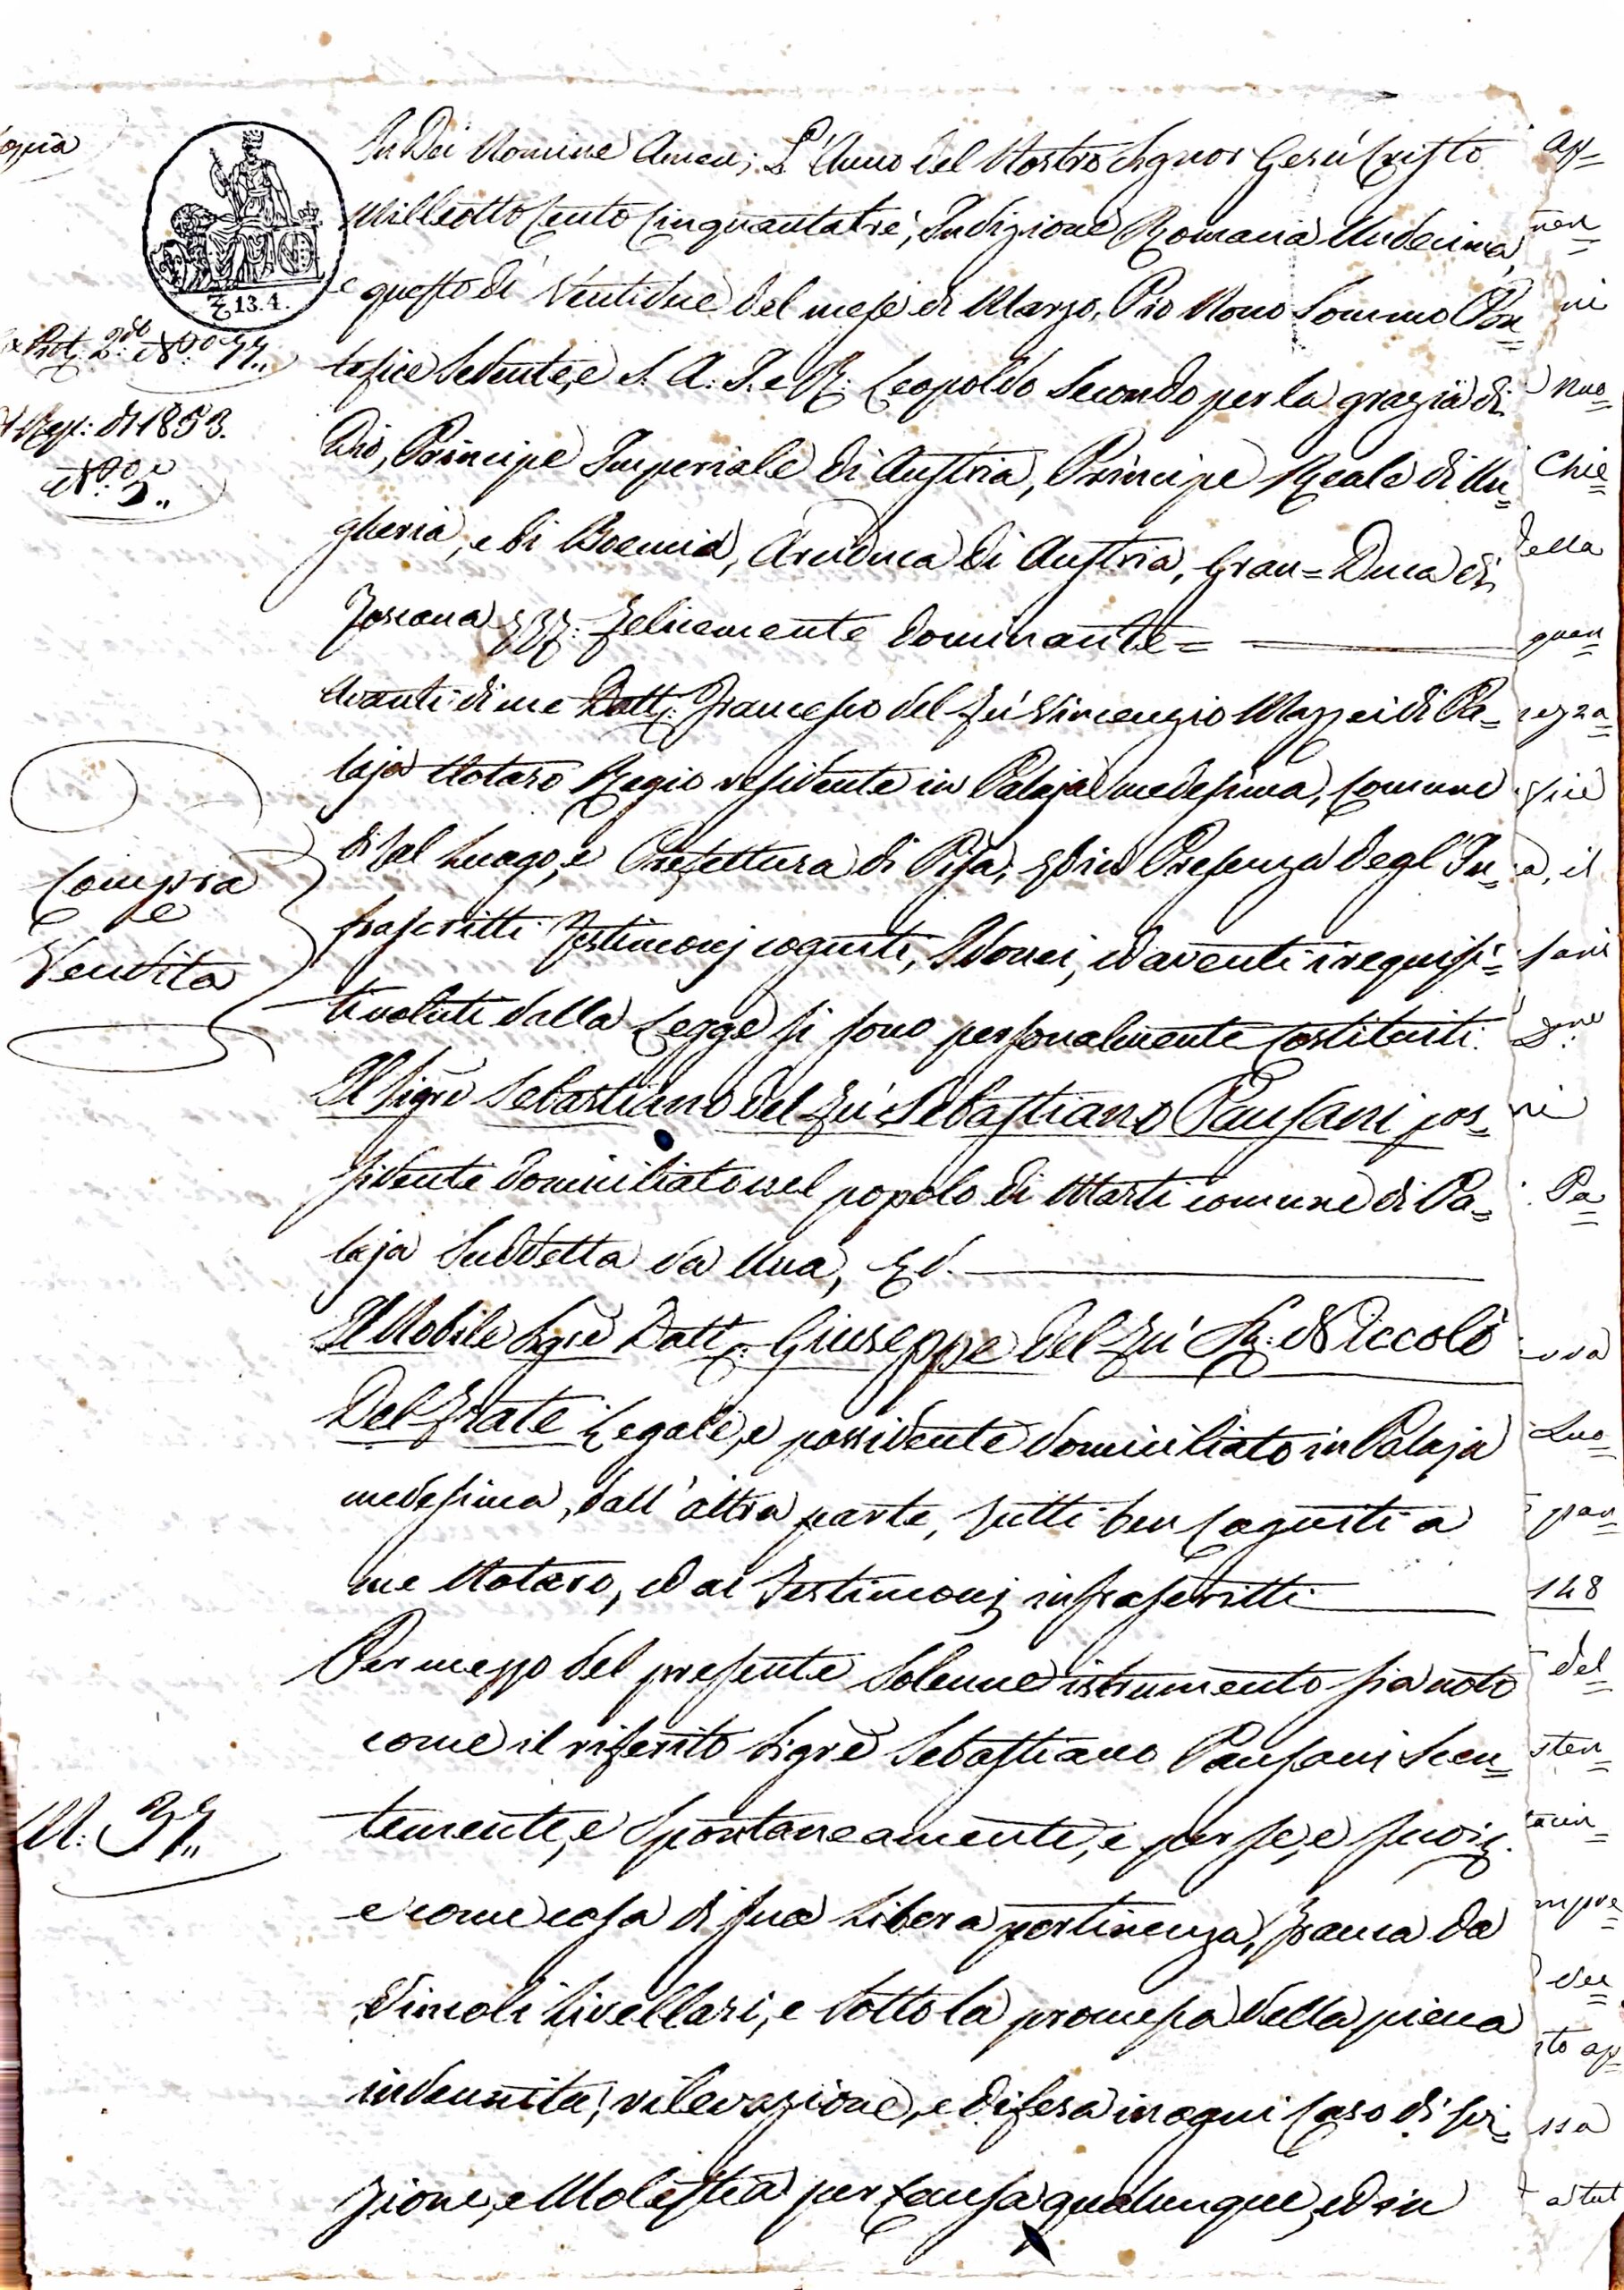 In Dei Nomine Amen; L'Anno del Nostro Signor Gesù Cristo
Milleotto Cento Cinquantatre, Indizione Romana Undecima,
e questo dì Ventidue del mese di Marzo, Pio Nono Sommo Pon=
tefice Sedente, e S. A. I. e R. Leopoldo Secondo per la grazia di
Dio, Principe Imperiale di Austria, Principe Reale di Un=
gheria, e di Boemia, Arciduca di Austria, Gran=Duca di
Toscana Felicemente dominante=
Avanti di me Dott. Francesco del fù Vincenzio Mazzei di Pa=
laja Notaro Regio residente in Palaja medesima, Comune
di tal Luogo, e Prefettura di Pisa, ed in Presenza degl'In=
frascritti Testimonj cogniti, Idonei, ed aventi i requisi=
ti voluti dalla Legge si sono personalmente Costituiti.
Il Sigre Sebastiano del fù Sebastiano Pansani pos=
sidente domiciliato nel popolo di Marti comune di Pa=
laja Suddetta da Una, Ed.
Il Nobile Sigre Dott. Giuseppe del fù Niccolò
Del Frate Legale, e possidente domiciliato in Palaja
medesima, dall'altra parte, tutti ben Cogniti a
me Notaro, ed ai Testimonj infrascritti
Per mezzo del presente Solenne istrumento sia noto
come il riferito Sigre Sebastiano Pansani Scien=
temente, e Spontaneamente, e per se, e suoi
e come cosa di sua Libera pertinenza, franca da
Vincoli Livellari, e Sotto la promessa della piena
indennita, rilevazione, e difesa in ogni Caso di
zione, e Molestia per Causa qualunque, ed in
13.4.
Prot. 2do No. 77.
Rep. di 1853.
No. 5.
Compra
e
Vendita
N: 37.
ap=
men=
ni
nuo=
Chie=
della
quan=
rezza=
a, il
sani
ni
Pa=
Luo=
par=
148
del=
sten=
mpre=
sto ap=
ssa
a tut